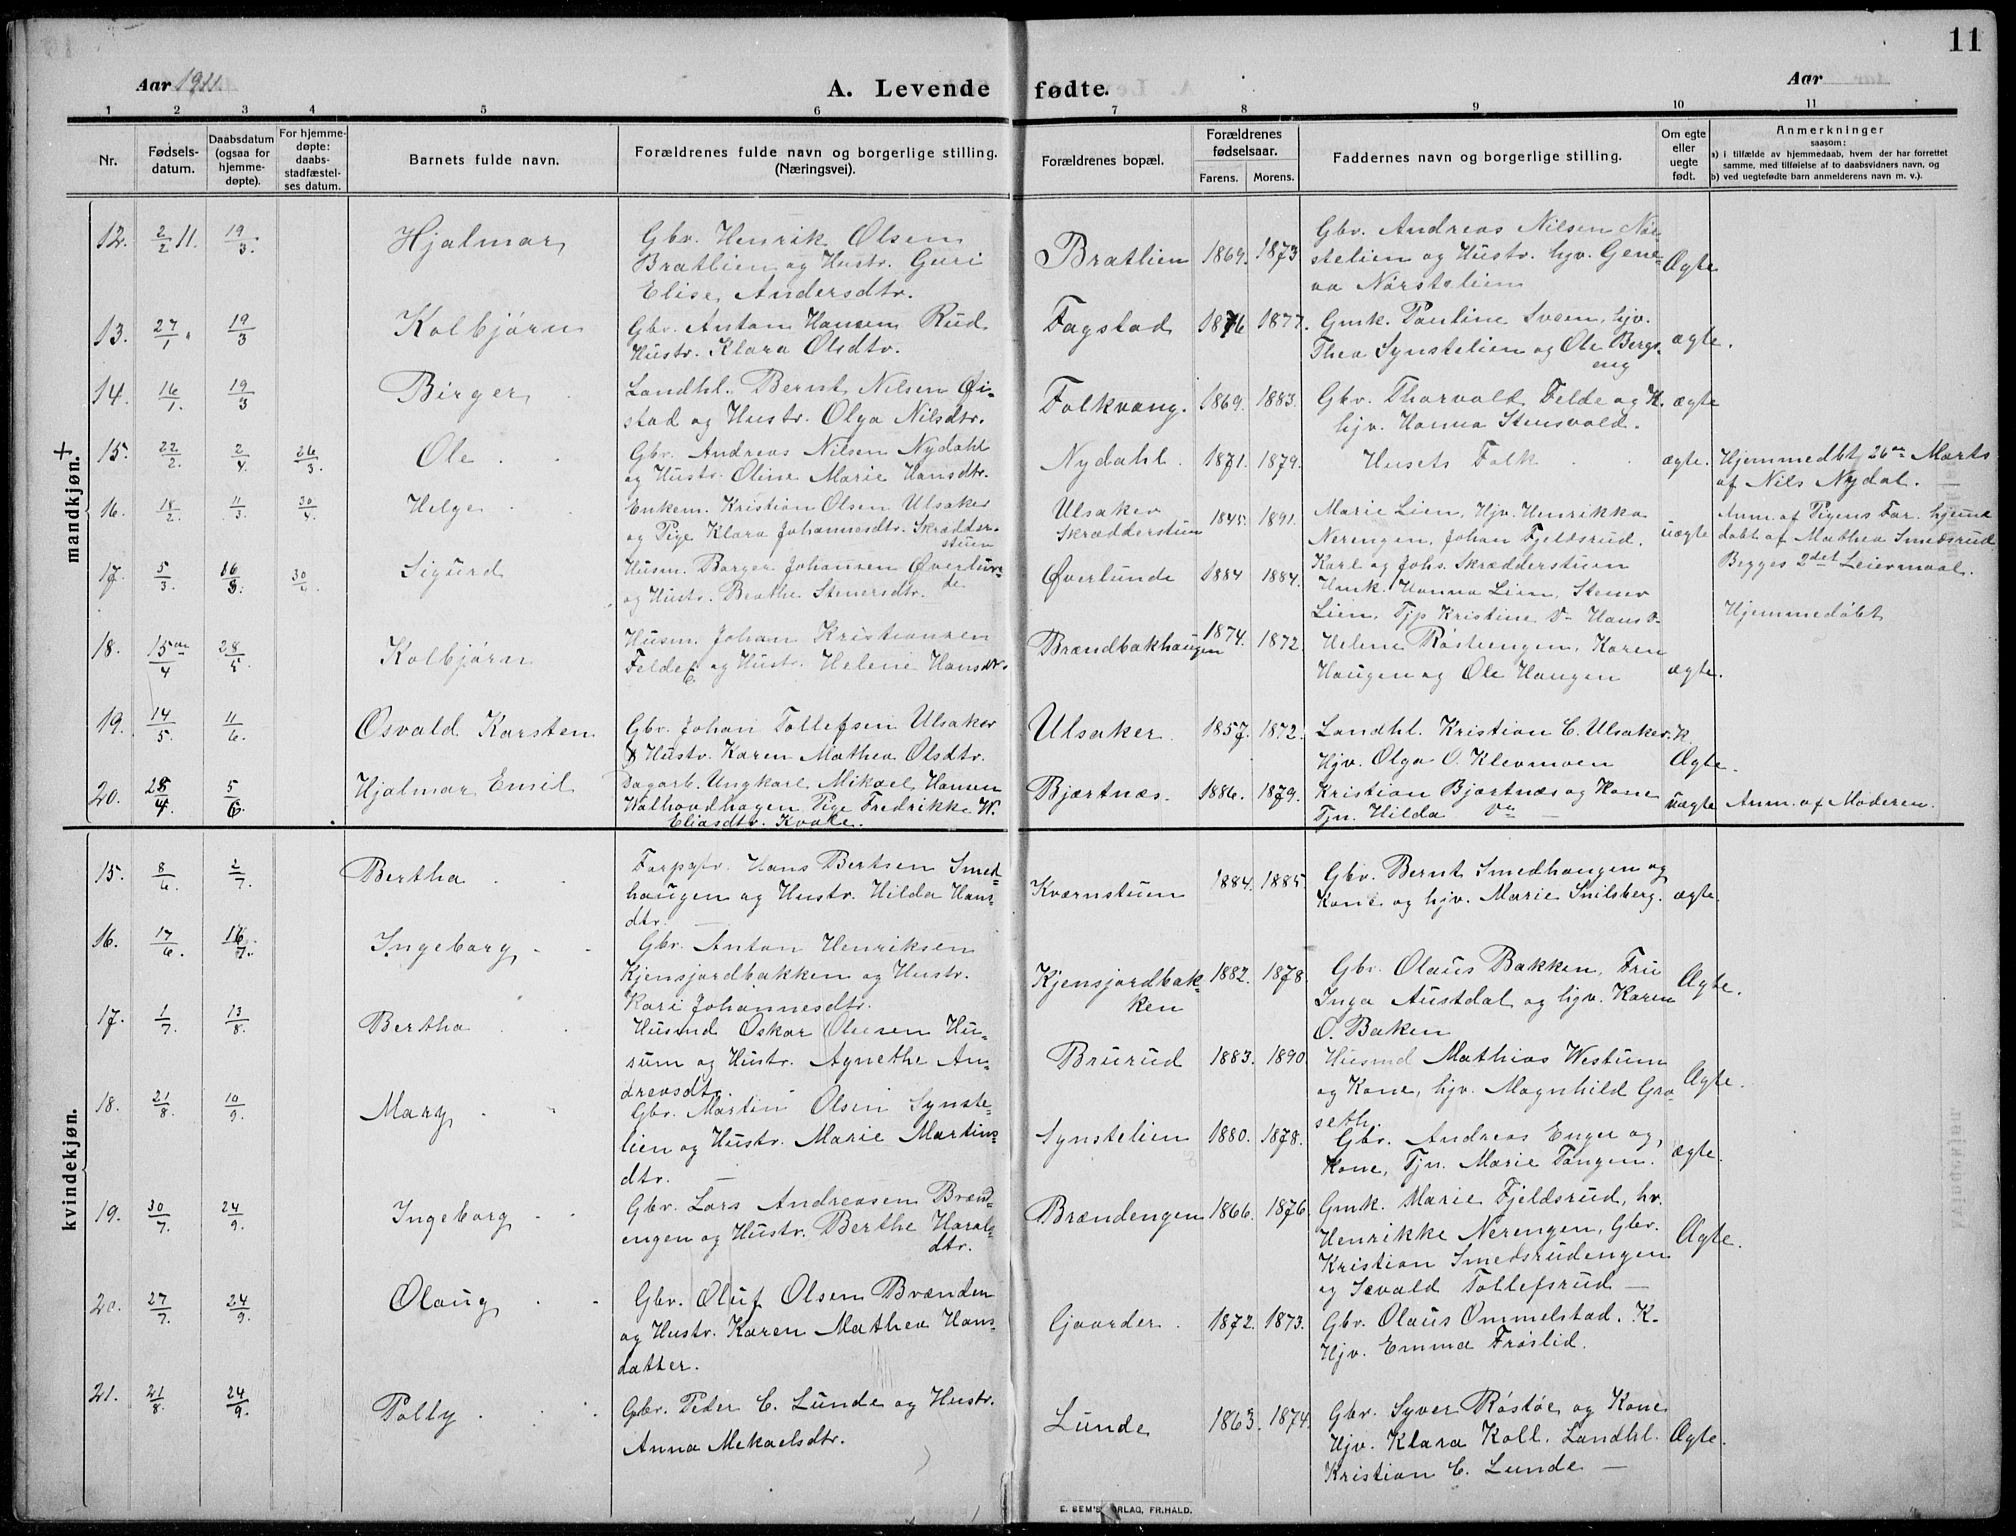 11
Aar 1911
A. Levende fødte.
Aar
1 2 3 4 5 6 7 8 9 10 11
Nr.
Fødsels-
datum.
Daabsdatum
(ogsaa for
hjemme-
døpte).
For hjemme-
døpte:
daabs-
stadfæstel-
ses datum.
Barnets fulde navn.
Forældrenes fulde navn og borgerlige stilling.
(Næringsvei).
Forældrenes bopæl.
Forældrenes
fødselsaar.
Farens. Morens.
Faddernes navn og borgerlige stilling.
Om egte
eller
uegte
født.
Anmerkninger
saasom:
a) i tilfælde av hjemmedaab, hvem der har forrettet
samme, med tilføielse af to daabsvidners navn, og
b) ved uegtefødte barn anmelderens navn m. v.).
mandkjøn. +
12. 2/2 11. 19/3. Hjalmar
Gbr. Henrik Olsen
Bratlien og Hustr. Guri
Elise Andersdtr.
Bratlien 1869. 1873
Gbr. Andreas Nilsen Nør-
stelien og Hustr. hjv. Gene-
va Nørstelien
Ægte
13. 27/1 " 19/3 Kolbjørn
Gbr. Anton Hansen Rud
Hustr. Klara Olsdtr.
Fagstad 1876 1877.
Gmk. Pauline Sveen, hjv.
Thea Synstelien og Ole Bergs-
eng
ægte.
14. 16/1. 19/3 Birger
Landhl. Bernt Nilsen Øi-
stad og Hustr. Olga Nilsdtr.
Folkvang. 1869. 1883.
Gbr. Thorvald Felde og K.
hjv. Hanna Stensvold.
ægte
15. 22/2. 2/4 26/3. Ole
Gbr. Andreas Nilsen Nydahl
og Hustr. Oline Marie Hansdtr.
Nydahl. 1871. 1879.
Husets Folk
ægte.
Hjemmedbt 26de Marts
af Nils Nydal.
16. 18/2. 11/3. 30/4 Helge
Enkem. Kristian Olsen Ulsaker
og Pige Klara Johannesdtr. Skrædder-
stuen
Ulsaker
Skrædderstuen
1845. 1891.
Marie Lien, Hjv. Henrikka
Nerengen, Johan Fjeldsrud.
Karl og Johs. Skrædderstuen
uægte
Anm. af Pigens Far. hjem
døbt af Mathea Smedsrud
Begges 2det Leiermaal.
17. 5/3. 16/3. 30/4. Sigurd
Husm. Borger Johansen Øverlun-
de
og Hustr. Berthe Stenersdtr.
Øverlunde 1884 1884.
Gmk. Hanna Lien, Stener
Lien, Tjp Kristine D- Hans D-
Hjemmedøbt
18. 15de/4 28/5. Kolbjørn
Husm. Johan Kristiansen
Felde og Hustr. Helene Hansdtr.
Brændbakhaugen 1874. 1872.
Helene Røstengen, Karen
Haugen og Ole Haugen
ægte.
19. 14/5. 11/6. Osvald Karsten
Gbr. Johan Tollefsen Ulsaker
& Hustr. Karen Mathea Olsdtr.
Ulsaker. 1857. 1872.
Landhl. Kristian C. Ulsaker. K.
Hjv. Olga O. Klevmoen
Ægte.
20. 28/4. 5/6. Hjalmar Emil
Dagarb. Ungkarl Mikael Hansen
Walhovdhagen Pige Fredrikke W.
Eliasdtr. Kvake.
Bjærtnæs. 1886. 1879.
Kristian Bjærtnæs og Kone
Tjn. Hilda Do —
uægte
Anm. af Moderen.
kvindekjøn.
15. 8/6. 2/7. Bertha
Forpgtr. Hans Bertsen Smed-
haugen og Hustr. Hilda Hans-
dtr. —
Kværnstuen 1884. 1885.
Gbr. Bernt Smedhaugen og
Kone og hjv. Marie Snilsberg.
ægte.
16. 17/6. 16/7. Ingeborg
Gbr. Anton Henriksen
Kjensjordbakken og Hustr.
Kari Johannesdtr.
Kjensjordbak-
ken
1882. 1878.
Gbr. Olaus Bakken, Fru
Inga Austdal og hjv. Karen
O. Baken
Ægte.
17. 1/7. 13/8. Bertha
Husmd Oskar Olsen Hu-
sum og Hustr. Agnethe An-
dreasdtr.
Brurud 1883. 1890
Husmd Mathias Westum
og Kone, hjv. Magnhild Gra-
seth.
Ægte.
18. 21/8. 10/9. Mary
Gbr. Martin Olsen Synste-
lien og Hustr. Marie Martins-
dtr. —
Synstelien 1880. 1878.
Gbr. Andreas Enger og
Kone, Tjn. Marie Tangen.
ægte.
19. 30/7. 24/9. Ingeborg
Gbr. Lars Andreasen Brænd-
engen og Hustr. Berthe Harals-
dtr.
Brændengen 1866. 1876.
Gmk. Marie Fjeldsrud, hv.
Henrikke Nerengen, Gbr.
Kristian Smedsrudengen
og Sevald Tollefsrud —
Ægte.
20. 27/7. 24/9. Olaug
Gbr. Oluf Olsen Brænden
og Hustr. Karen Mathea Hans-
datter.
Gaarder. 1872. 1873.
Gbr. Olaus Ommelstad. K.
Hjv. Emma Frøslid.
21. 21/8. 24/9. Polly
Gbr. Peder C. Lunde og Hustr.
Anna Mekaelsdtr.
Lunde 1863. 1874.
Gbr. Syver Røstøe og Kone
Hjv. Klara Koll. Landhl.
Kristian C. Lunde —
Ægte.
E. SEM'S FORLAG, FR.HALD.